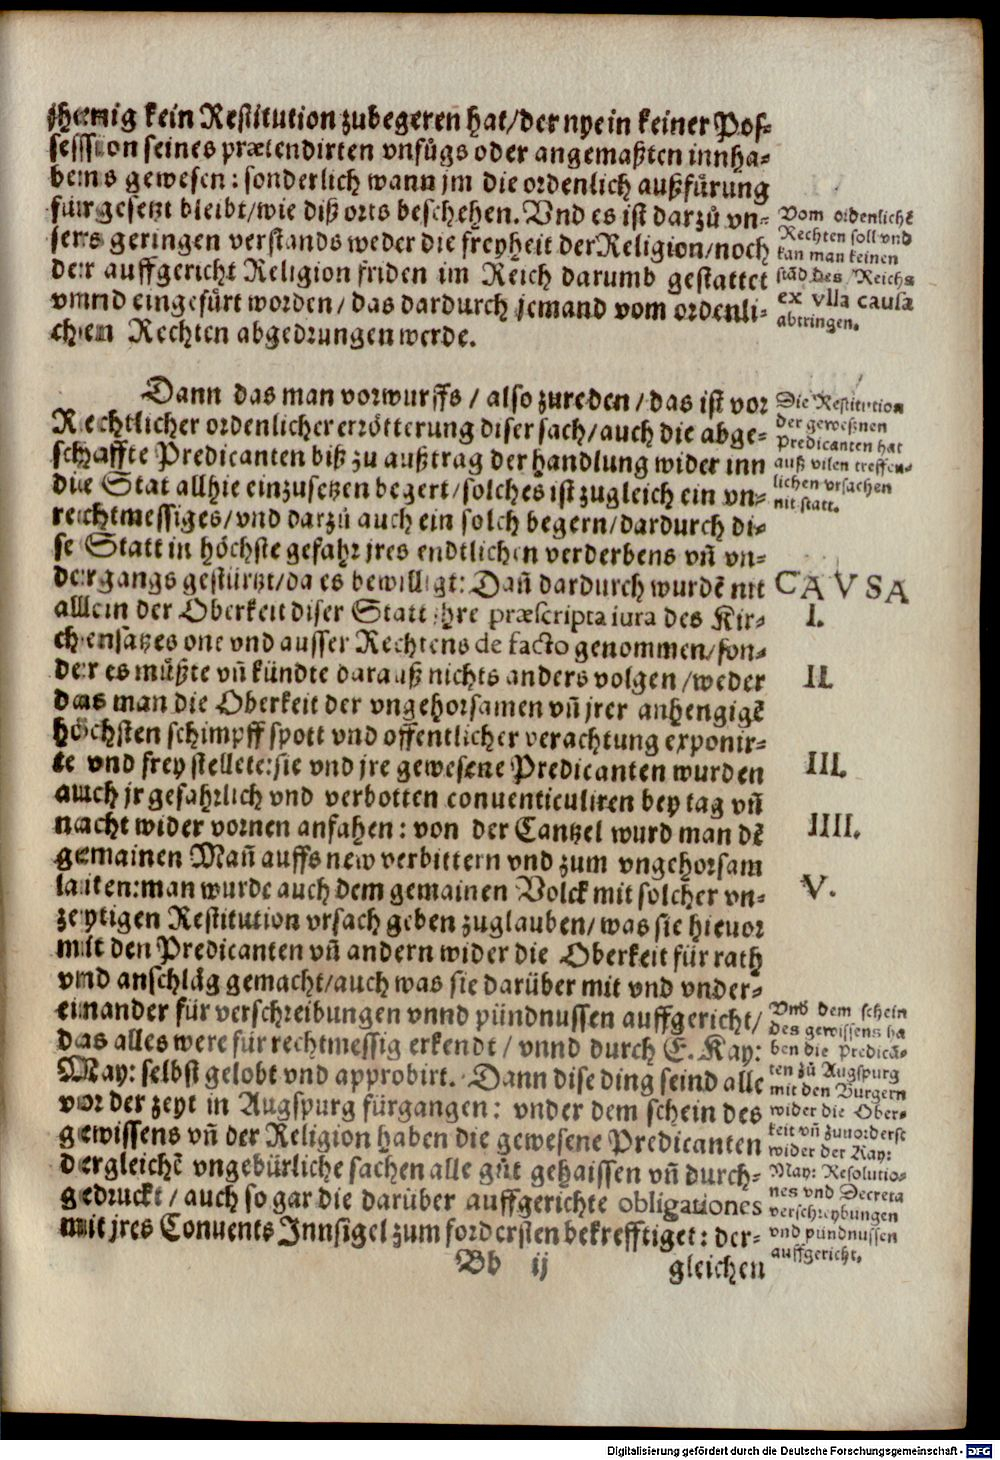 jhenig kein Restitution zubegeren hat/der nye in keiner Pos-
session seines prætendirten vnfůgs oder angemaßten innha-
bens gewesen: sonderlich wann jm die ordenlich außfürung
fürgesetzt bleibt/wie diß orts beschehen. Vnd es ist darzů vn-
sers geringen verstands weder die freyheit der Religion/noch
der auffgericht Religion friden im Reich darumb gestattet
vnnd eingefürt worden/das dardurch jemand vom ordenli-
chen Rechten abgedrungen werde.
Vom ordenlichē
Rechten soll vnd
kan man keinen
stād des Reichs
ex vlla causa
abtringen.
Dann das man vorwurffs/also zureden/das ist vor
Rechtlicher ordenlicher errötterung diser sach/auch die abge-
schaffte Predicanten biß zu außtrag der handlung wider inn
die Stat allhie einzusetzen begert/solches ist zugleich ein vn-
rechtmessiges/vnd darzů auch ein solch begern/dardurch di-
se Statt in höchste gefahr jres endtlichen verderbens vn̄ vn-
dergangs gestürtzt/da es bewilligt: Dañ dardurch wurdē nit
allein der Oberkeit diser Statt jhre præscripta iura des Kir-
chensatzes one vnd ausser Rechtens de facto genommen/son-
der es müßte vn̄ kündte darauß nichts anders volgen/weder
das man die Oberkeit der vngehorsamen vn̄ jrer anhengigē
höchsten schimpff spott vnd offentlicher verachtung exponir-
te vnd frey stellete: sie vnd jre gewesene Predicanten wurden
auch jr gefahrlich vnd verbotten conuenticuliren bey tag vn̄
nacht wider vornen anfahen: von der Cantzel wurd man dē
gemainen Mañ auffs new verbittern vnd zum vngehorsam
laiten: man wurde auch dem gemainen Volck mit solcher vn-
zeytigen Restitution vrsach geben zuglauben/was sie hieuor
mit den Predicanten vn̄ andern wider die Oberkeit für rath
vnd anschläg gemacht/auch was sie darüber mit vnd vnder-
einander für verschreibungen vnnd pündnussen auffgericht/
das alles were für rechtmessig erkendt/vnnd durch E. Kay:
May: selbst gelobt vnd approbirt. Dann dise ding seind alle
vor der zeyt in Augspurg fürgangen: vnder dem schein des
gewissens vn̄ der Religion haben die gewesene Predicanten
dergleichē vngebürliche sachen alle gůt gehaissen vn̄ durch-
gedruckt/auch so gar die darüber auffgerichte obligationes
mit jres Conuents Innsigel zum fordersten bekrefftiget: der-
Die Restitution
der geweßnen
Predicanten hat
auß vilen treffen-
lichen vrsachen
nit statt.
CAVSA
I.
II.
III.
IIII.
V.
Vnd dem schein
des gewissens ha
ben die Predicā-
ten zů Augspurg
mit den Burgern
wider die Ober-
keit vn̄ zuuorderst
wider der Kay:
May: Resolutio-
nes vnd Decreta
verschreybungen
vnd pündnussen
auffgericht.
Bb ij
gleichen
Digitalisierung gefördert durch die Deutsche Forschungsgemeinschaft - DFG